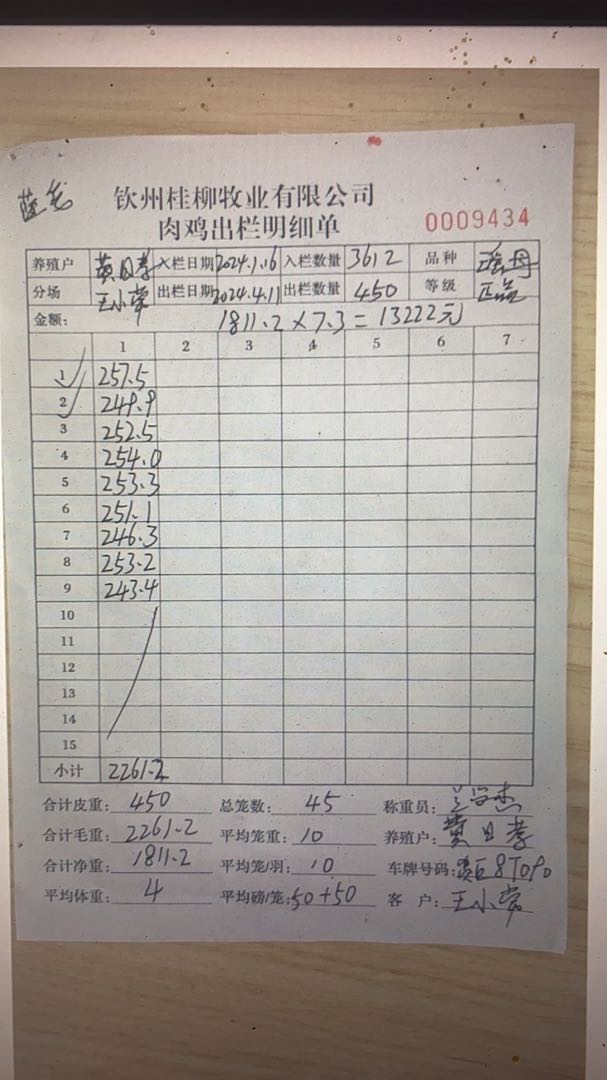 钦州桂柳牧业有限公司
肉鸡出栏明细单
0009434
养殖户 黄日孝 入栏日期 2024.1.16 入栏数量 3612 品种
分场 王小常 出栏日期 2024.4.11 出栏数量 450 等级 正品
金额: 1811.2×7.3=13222元
1 2 3 4 5 6 7
1 257.5
2 249.9
3 252.5
4 254.0
5 253.3
6 251.1
7 246.3
8 253.2
9 243.4
10
11
12
13
14
15
小计 2261.2
合计皮重: 450 总笼数: 45 称重员:
合计毛重: 2261.2 平均笼重: 10 养殖户: 黄日孝
合计净重: 1811.2 平均笼/羽: 10 车牌号码:
平均体重: 4 平均磅/笼: 50+50 客户: 王小常